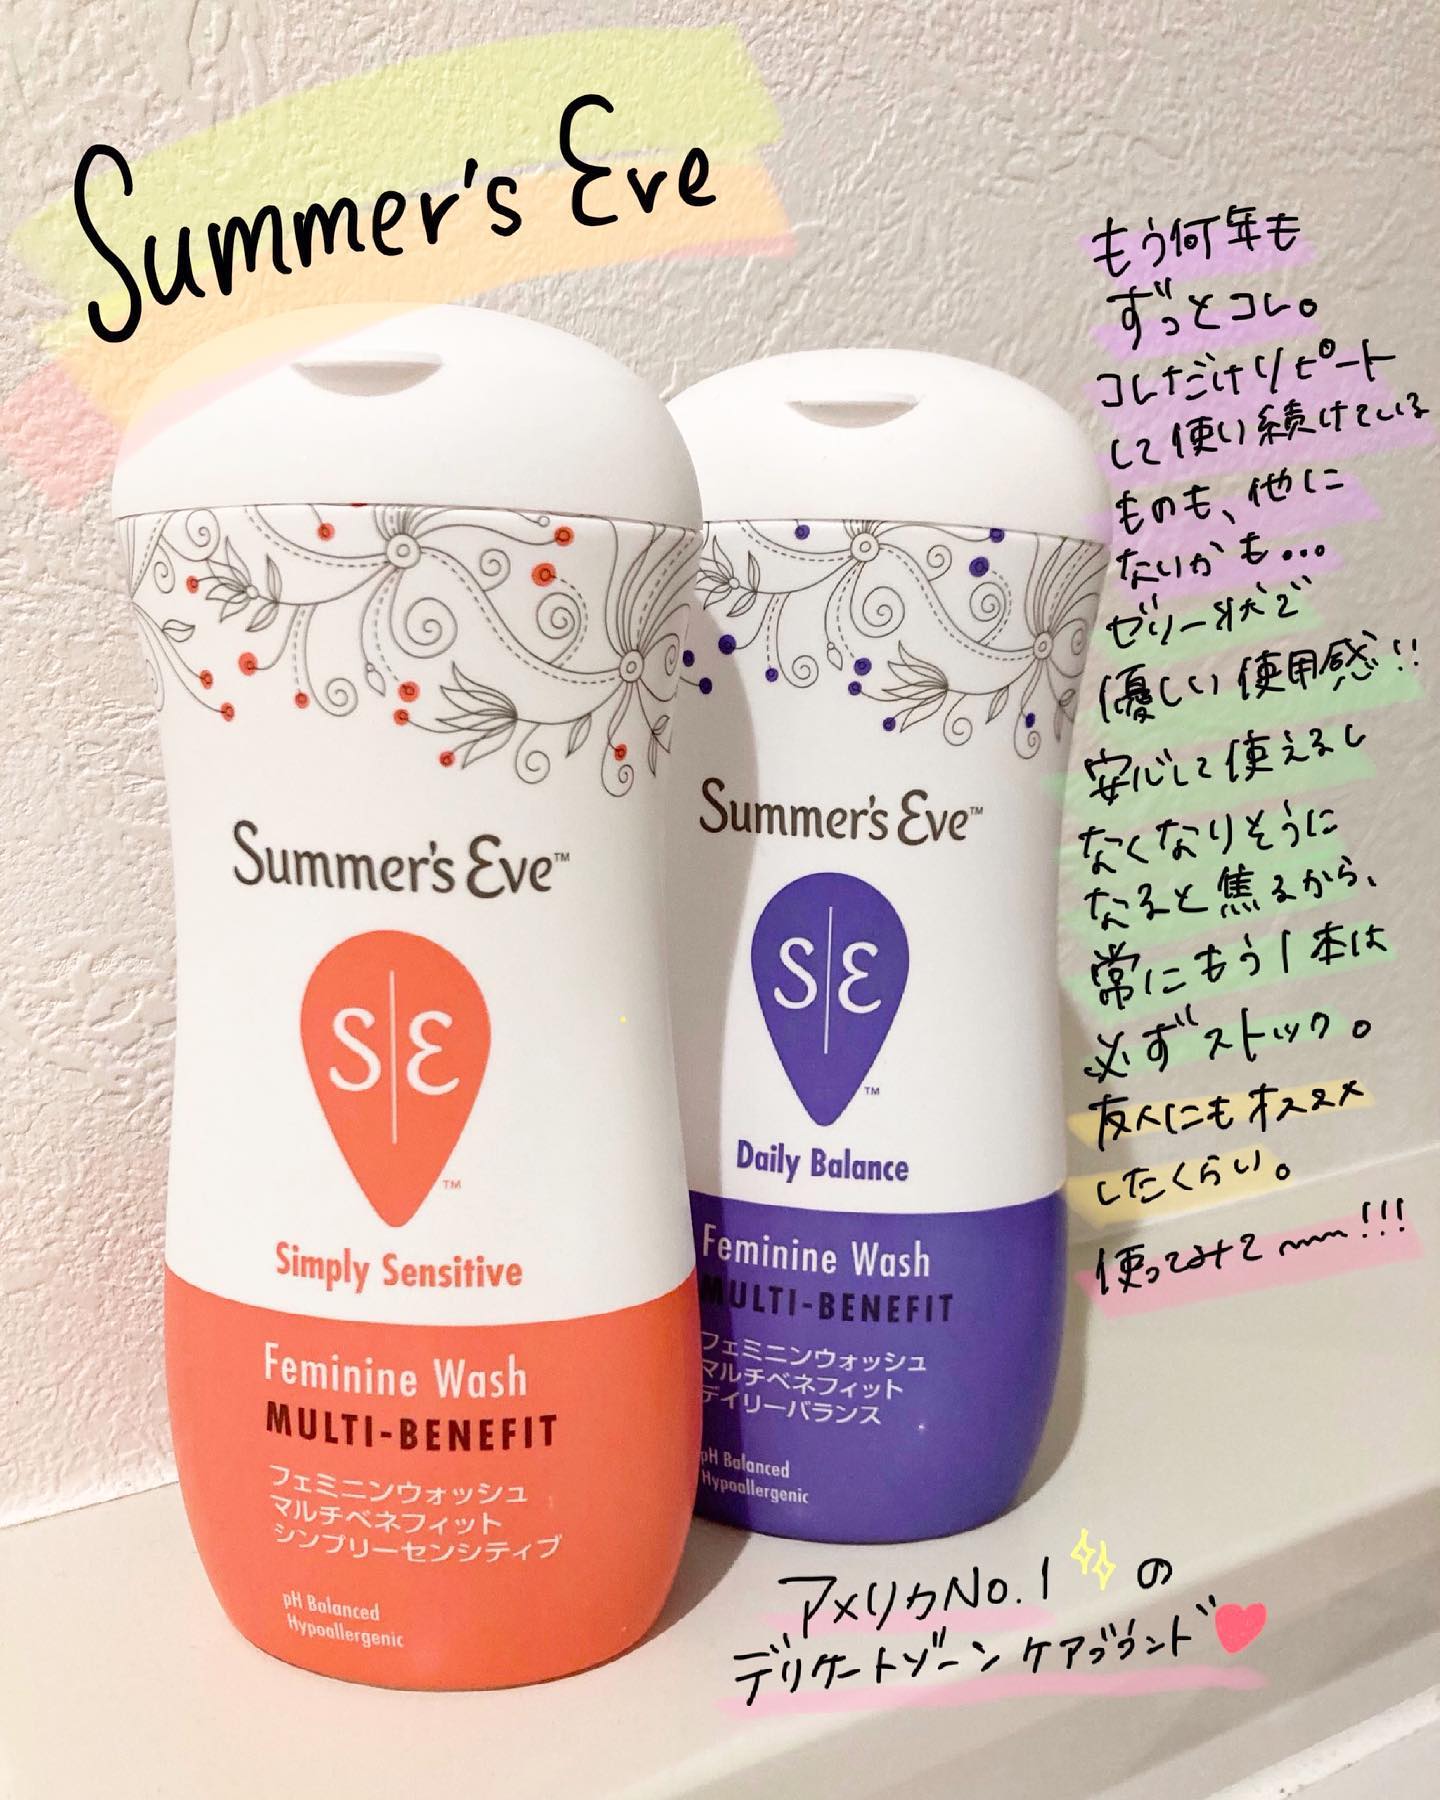 Summer's Eve
もう何年も
ずっとコレ。
コレだけリピート
して使い続けている
ものも、他に
ないかも...
ゼリー状で
優しい使用感!!
安心して使えるし
なくなりそうに
なると焦るから、
常にもう1本は
必ずストック。
友人にもオススメ
したくらい。
使ってみて〜〜!!!
Summer's Eve™
S|E
™
Simply Sensitive
Feminine Wash
MULTI-BENEFIT
フェミニンウォッシュ
マルチベネフィット
シンプリーセンシティブ
pH Balanced
Hypoallergenic
Summer's Eve™
S|E
™
Daily Balance
Feminine Wash
MULTI-BENEFIT
フェミニンウォッシュ
マルチベネフィット
デイリーバランス
pH Balanced
Hypoallergenic
アメリカNo.1の
デリケートゾーンケアブランド